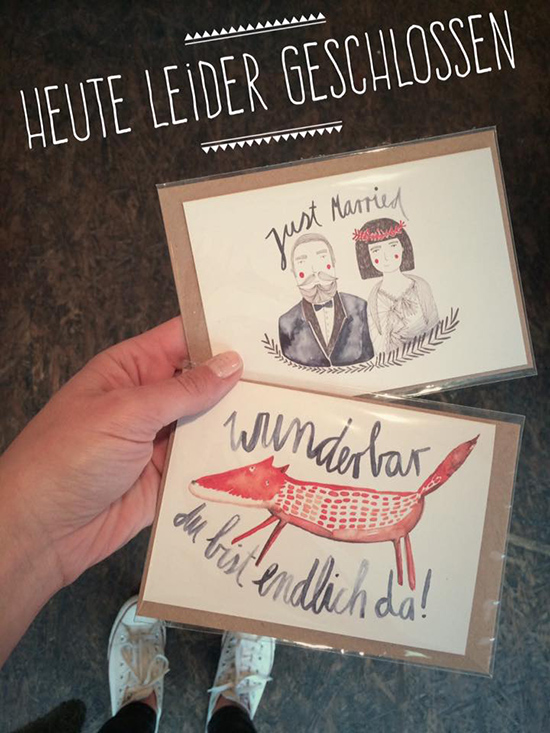 HEUTE LEIDER GESCHLOSSEN
Just Married
wunderbar
du bist endlich da!